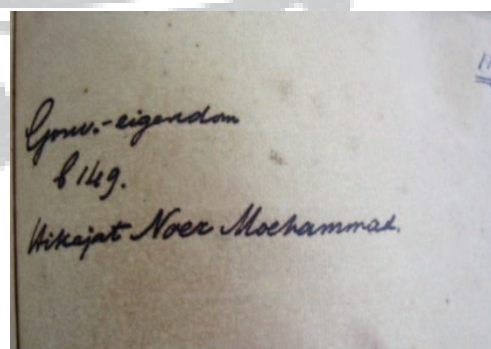 Gouv.-eigendom
b 149.
Hikajat Noer Moehammad.